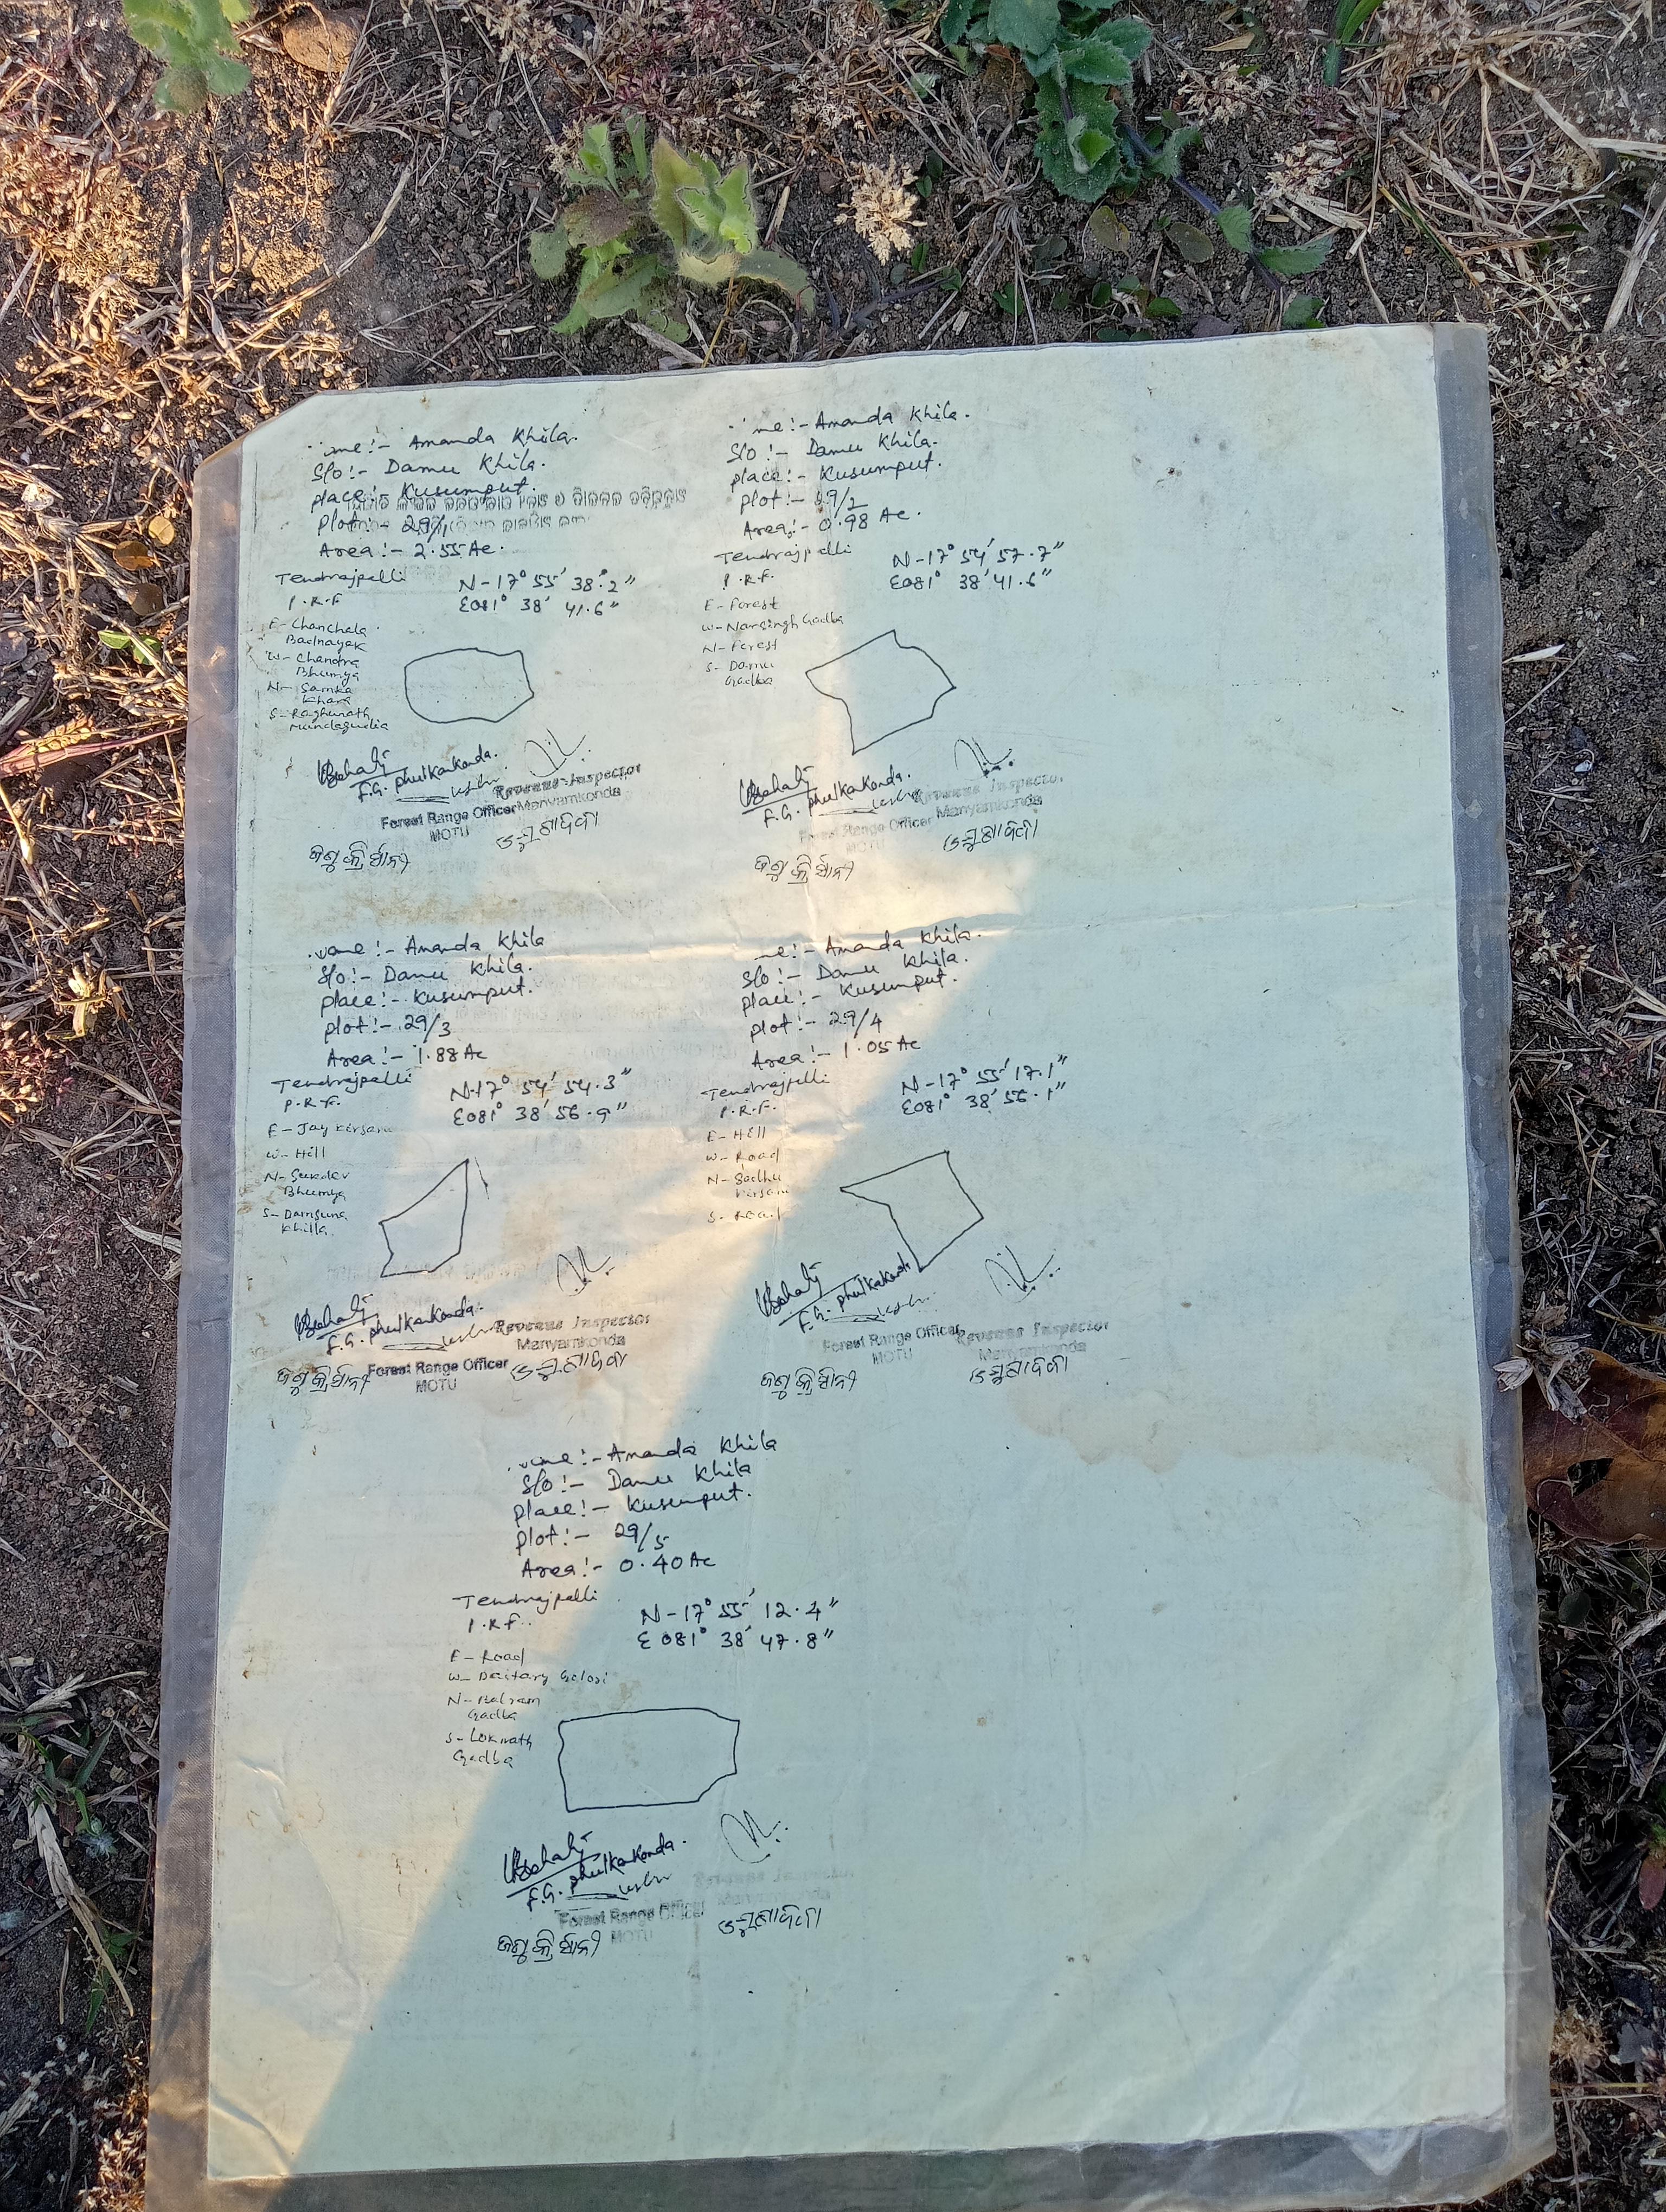 ame :- Ananda Khila.
S/o :- Damu Khila.
place :- Kusumput.
plot :- 29/1
Area :- 2.55 Ac.
Tendrajpalli
P.R.F
N-17° 55' 38.2"
E081° 38' 41.6"
E- Chanchala
Badnayak
W- Chandra
Bhumya
N- Samka
Khara
S- Raghunath
Mundagudia
F.G. Phulkakonda.
Revenue Inspector
Manyamkonda
Forest Range Officer
MOTU
me :- Ananda Khila.
S/o :- Damu Khila.
place :- Kusumput.
plot :- 29/2
Area :- 0.98 Ac.
Tendrajpalli
P.R.F.
N-17° 54' 57.7"
E081° 38' 41.6"
E- Forest
W- Narsingh Gadba
N- Forest
S- Damu
Gadba
F.G. Phulkakonda.
Revenue Inspector
Manyamkonda
Forest Range Officer
MOTU
ame :- Ananda Khila
S/o :- Damu Khila.
place :- Kusumput.
plot :- 29/3
Area :- 1.88 Ac
Tendrajpalli
P.R.F.
N-17° 54' 54.3"
E081° 38' 56.9"
E- Jay Kirsani
W- Hill
N- Sukdev
Bhumya
S- Damsuna
Khilla
F.G. Phulkakonda.
Revenue Inspector
Manyamkonda
Forest Range Officer
MOTU
me :- Ananda Khila.
S/o :- Damu Khila.
place :- Kusumput.
plot :- 29/4
Area :- 1.05 Ac
Tendrajpalli
P.R.F.
N-17° 55' 17.1"
E081° 38' 56.1"
E- Hill
W- Road
N- Sadhu
Kirsani
S- Road
F.G. Phulkakonda
Revenue Inspector
Manyamkonda
Forest Range Officer
MOTU
ame :- Ananda Khila
S/o :- Damu Khila
place :- Kusumput.
plot :- 29/5
Area :- 0.40 Ac
Tendrajpalli
P.R.F.
N-17° 55' 12.4"
E081° 38' 47.8"
E- Road
W- Daitary Golori
N- Balram
Gadba
S- Loknath
Gadba
F.G. Phulkakonda.
Revenue Inspector
Manyamkonda
Forest Range Officer
MOTU